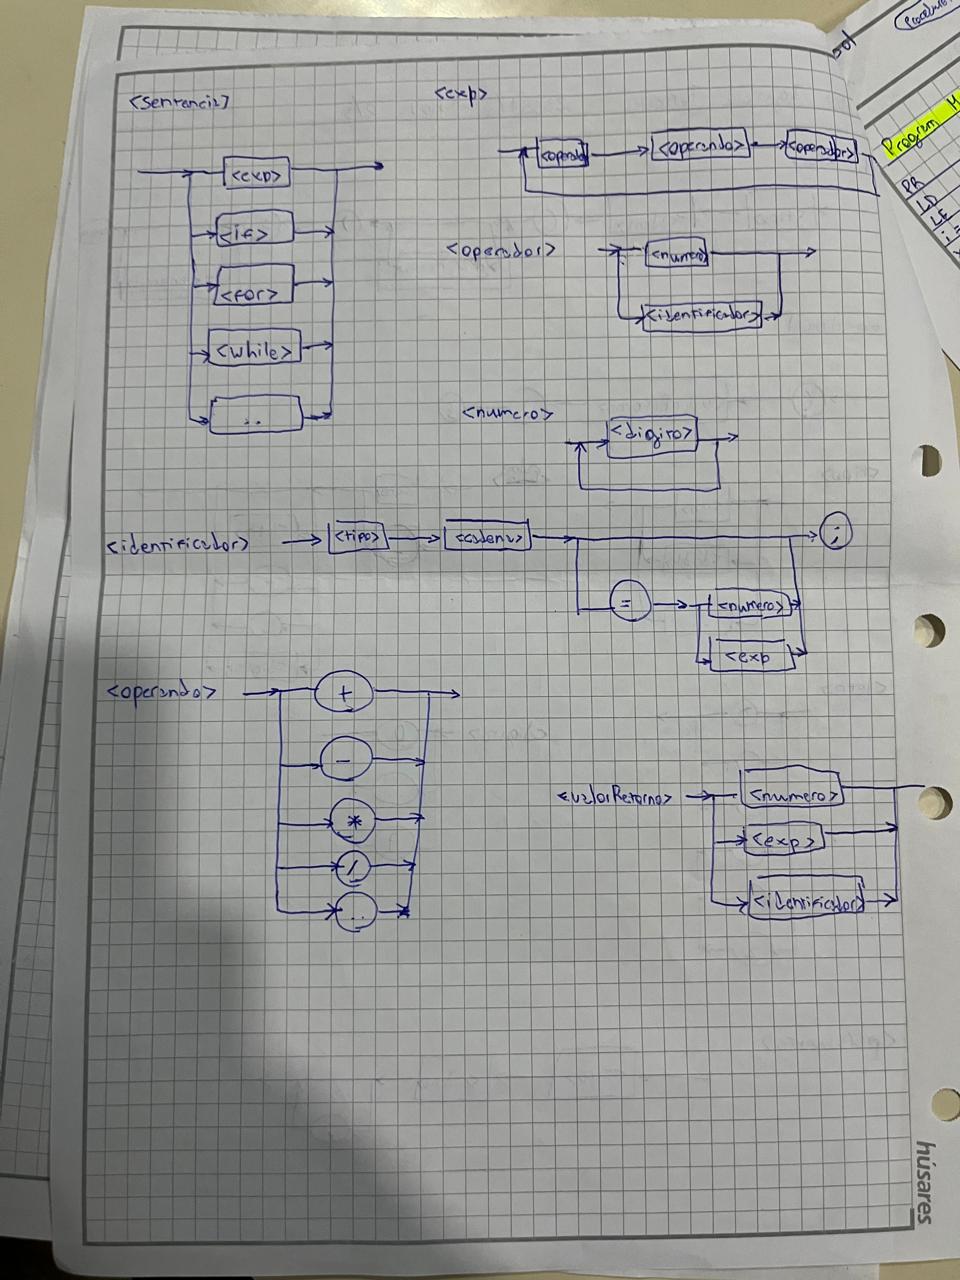 <sentencia>
<exp>
<if>
<for>
<while>
..
<exp>
<operando> <operador>
<operador>
<numero>
<identificador>
<numero>
<digito>
<identificador> <tipo> <cadena> ;
= <numero>
<exp
<operando>
+
-
*
/
..
<valorRetorno>
<numero>
<exp>
<identificador>
Program
húsares